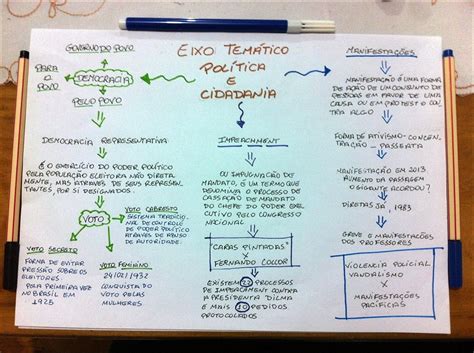 EIXO TEMÁTICO
POLÍTICA
E
CIDADANIA
GOVERNO DO POVO
PARA
O
POVO
DEMOCRACIA
PELO POVO
DEMOCRACIA REPRESENTATIVA
É O EXERCÍCIO DO PODER POLÍTICO
PELA POPULAÇÃO ELEITORA NÃO DIRETA
MENTE, MAS ATRAVÉS DE SEUS REPRESEN
TANTES, POR SI DESIGNADOS.
VOTO
VOTO CABRESTO
SISTEMA TRADICIO
NAL DE CONTROLE
DE PODER POLÍTICO
ATRAVÉS DE ABUSO
DE AUTORIDADE.
VOTO SECRETO
FORMA DE EVITAR
PRESSÃO SOBRE OS
ELEITORES
PELA PRIMEIRA VEZ
NO BRASIL EM
1928
VOTO FEMININO
24/02/1932
CONQUISTA DO
VOTO PELAS
MULHERES
IMPEACHMENT
OU IMPUGNAÇÃO DE
MANDATO, É UM TERMO QUE
DENOMINA O PROCESSO DE
CASSAÇÃO DE MANDATO
DO CHEFE DO PODER EXE
CUTIVO PELO CONGRESSO
NACIONAL
"CARAS PINTADAS"
X
FERNANDO COLLOR
EXISTEM 22 PROCESSOS
DE IMPEACHMENT CONTRA
A PRESIDENTA DILMA
E MAIS 10 PEDIDOS
PROTOCOLADOS
MANIFESTAÇÕES
MANIFESTAÇÃO É UMA FORMA
DE AÇÃO DE UM CONJUNTO DE
PESSOAS EM FAVOR DE UMA
CAUSA OU EM PROTESTO CON
TRA ALGO
FORMA DE ATIVISMO - CONCEN
TRAÇÃO - PASSEATA
MANIFESTAÇÃO EM 2013
AUMENTO DA PASSAGEM
O GIGANTE ACORDOU?
DIRETAS JÁ, 1983
GREVE E MANIFESTAÇÕES
DOS PROFESSORES
VIOLENCIA POLICIAL
VANDALISMO
X
MANIFESTAÇÕES
PACÍFICAS